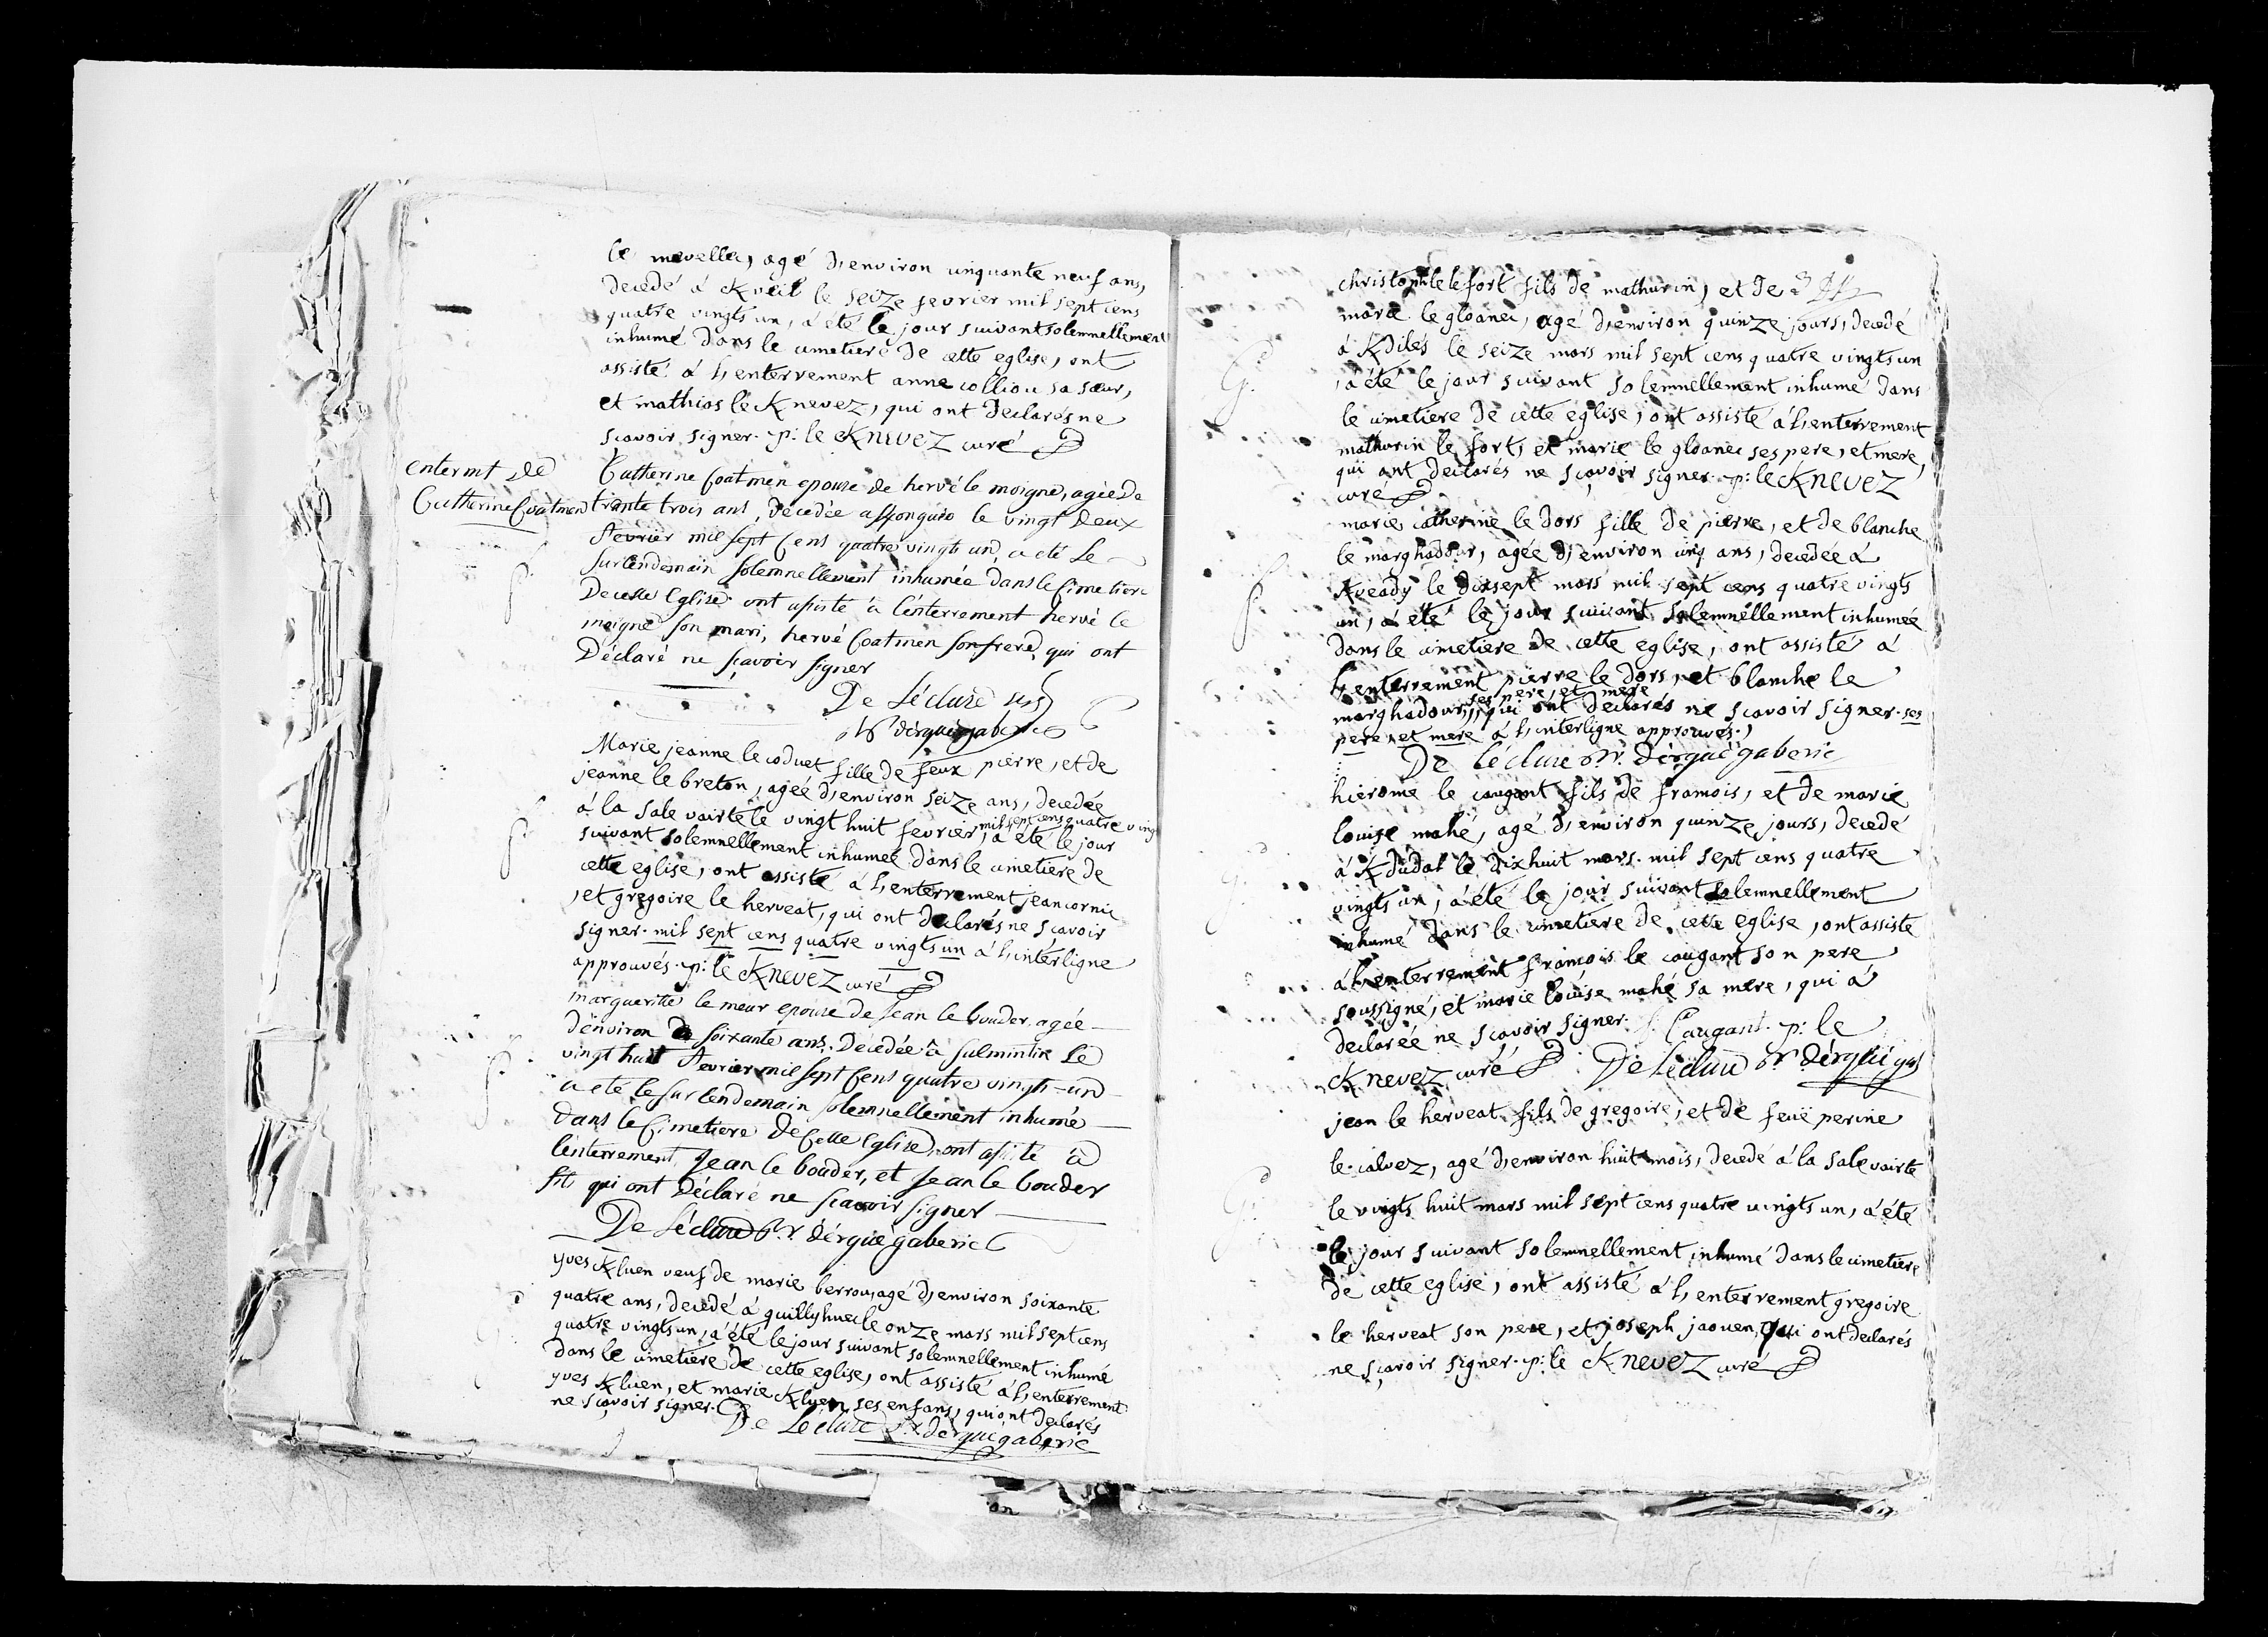 le mevellec, agé d'environ cinquante neuf ans,
decedé à Kveil le seize fevrier mil sept cens
quatre vingts un, à été le jour suivant solemnellement
inhumé dans le cimetiere de cette eglise, ont
assisté à l'enterrement anne colliou sa sœur,
et mathias le Knevez, qui ont declarés ne
scavoir signer. p: le Knevez curé
entermt de
Catherine Coatmen
Catherine Coatmen epouse de hervé le moigne, agée de
trante trois ans, decedée a le vingt deux
fevrier mil sept cens quatre vingt un, a eté le
surlendemain solemnellement inhumée dans le Cimetiere
De cette Eglise. ont asisté à l'énterrement hervé le
moigne son mari, hervé Coatmen son frere, qui ont
Déclaré ne sçavoir signer
De Léclure
dérguégaberic
Marie jeanne le coduet fille de feux pierre, et de
jeanne le breton, agée d'environ seize ans, decedée
à la sale vairte le vingt huit fevrier, mil sept cens quatre vingts un à été le jour
suivant solemnellement inhumée dans le cimetiere de
cette eglise, ont assisté à l'enterrement jean cornic
, et gregoire le herveat, qui ont declarés ne scavoir
signer. mil sept cens quatre vingts un à l'interligne
approuvés. p: le Knevez curé
margueritte le meur epouse de Jean le bouder, agée
dénviron soixante ans. Decedée à le
vingt huit fevrier mil sept Cens quatre vingt-un
a eté le surlendemain solemnellement inhumé
dans le Cimetiere de Cette Eglise, ont asisté à
l'énterrement Jean le bouder, et Jean le bouder
fils qui ont Déclaré ne scavoir signer
De Léclure r. dérguégaberic
yves Kluen veuf de marie berrou, agé d'environ soixante
quatre ans, decedé à quillyhuec le onze mars mil sept cens
quatre vingts un, à été le jour suivant solemnellement inhumé
dans le cimetiere de cette eglise, ont assisté à l'enterrement
yves Kluen, et marie Kluen ses enfans, qui ont declarés
ne sçavoir signer.
De Léclure r. dérguégaberic
christophle le fort fils de mathurin, et de
marie le gloanec, agé d'environ quinze jours, decedé
à Kdilés le seize mars mil sept cens quatre vingts un
, à été le jour suivant solemnellement inhumé dans
le cimetiere de cette eglise, ont assisté à l'enterrement
mathurin le fort, et marie le gloanec ses pere, et mere,
qui ont declarés ne sçavoir signer. p: le Knevez
curé
marie catherine le dors fille de pierre, et de blanche
le marghadour, agée d'environ cinq ans, decedée à
Kveady le dixsept mars mil sept cens quatre vingts
un, à été le jour suivant solemnellement inhumée
dans le cimetiere de cette eglise, ont assisté à
l'enterrement pierre le dors, et blanche le
marghadour, ses pere, et mere qui ont declarés ne scavoir signer. ses
pere, et mere à l'interligne approuvés.
De Léclure r. dérguégaberic
hierome le caugant fils de francois, et de marie
louise mahé, agé d'environ quinze jours, decedé
à Kdudal le dixhuit mars mil sept cens quatre
vingts un, à été le jour suivant solemnellement
inhumé dans le cimetiere de cette eglise, ont assisté
à l'enterrement francois le caugant son pere
soussigné, et marie louise mahé sa mere, qui à
declarée ne scavoir signer. Caugant. p: le
Knevez curé De Léclure r dérguégab
jean le herveat fils de gregoire, et de feüe perine
le calvez, agé d'environ huit mois, decedé à la sale vairte
le vingts huit mars mil sept cens quatre vingts un, à été
le jour suivant solemnellement inhumé dans le cimetiere
de cette eglise, ont assisté à l'enterrement gregoire
le herveat son pere, et joseph jaouen, qui ont declarés
ne sçavoir signer. p: le Knevez curé